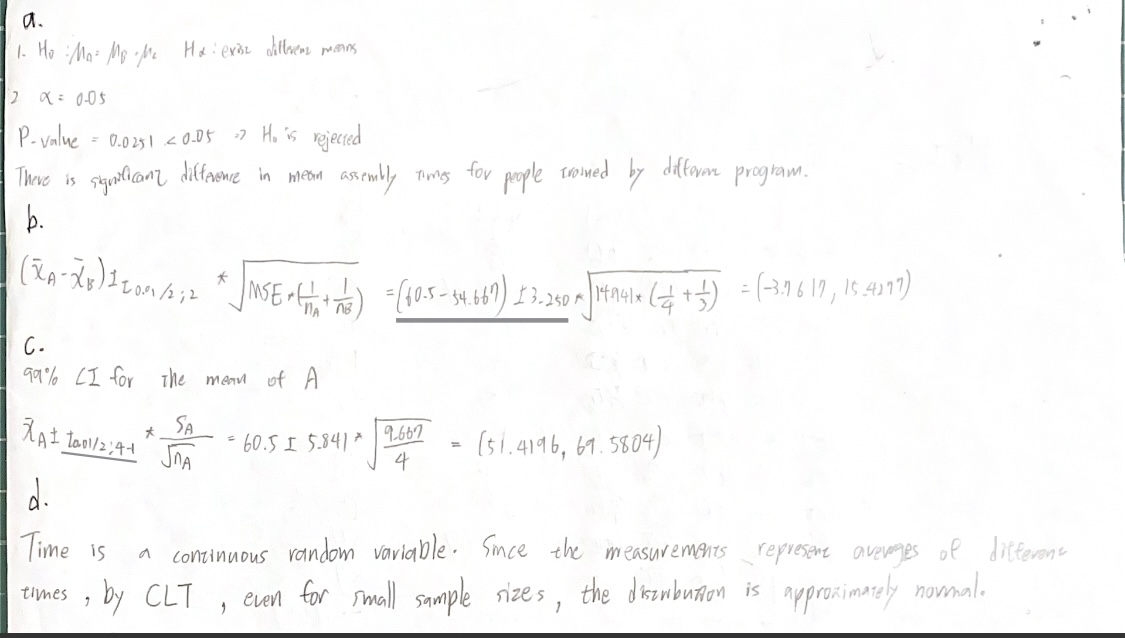 a.
1. H₀ : μA = μB = μC Hα : exist different means
2 α = 0.05
P-value = 0.0251 < 0.05 => H₀ is rejected
There is significant difference in mean assembly times for people trained by different program.
b.
(x̄A - x̄B) ± t0.01/2;2 * √MSE*(1/nA + 1/nB) = (60.5 - 54.667) ± 3.250 * √14.941*(1/4 + 1/3) = (-3.7617, 15.4277)
c.
99% CI for the mean of A
x̄A ± t0.01/2;4-1 * SA/√nA = 60.5 ± 5.841 * √9.667/4 = (51.4196, 69.5804)
d.
Time is a continuous random variable. Since the measurements represent averages of different
times, by CLT, even for small sample sizes, the distribution is approximately normal.